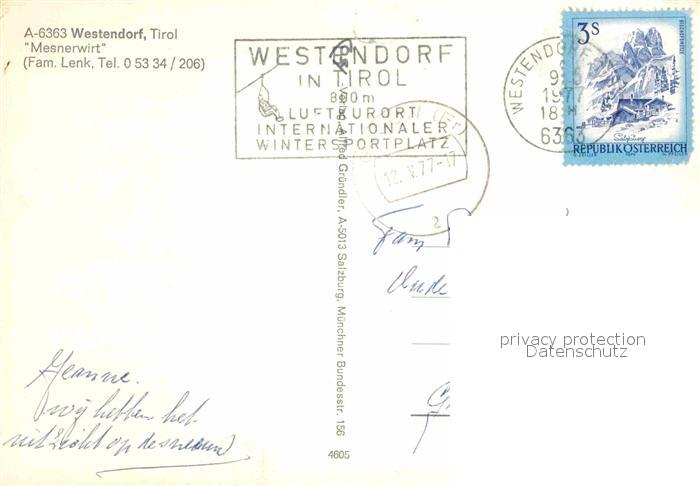 A-6363 Westendorf, Tirol
"Mesnerwirt"
(Fam. Lenk, Tel. 0 53 34 / 206)
WESTENDORF
IN TIROL
800 m
LUFTKURORT
INTERNATIONALER
WINTERSPORTPLATZ
WESTENDORF
1977
18
6363
3S
BISCHOFSMÜTZE
Salzburg
REPUBLIK ÖSTERREICH
12. X. 77-17
a
Verlag Alfred Gründler, A-5013 Salzburg, Münchner Bundesstr. 156
4605
Fam
privacy protection
Datenschutz
Jeanne.
wij hebben het
uitzicht op de